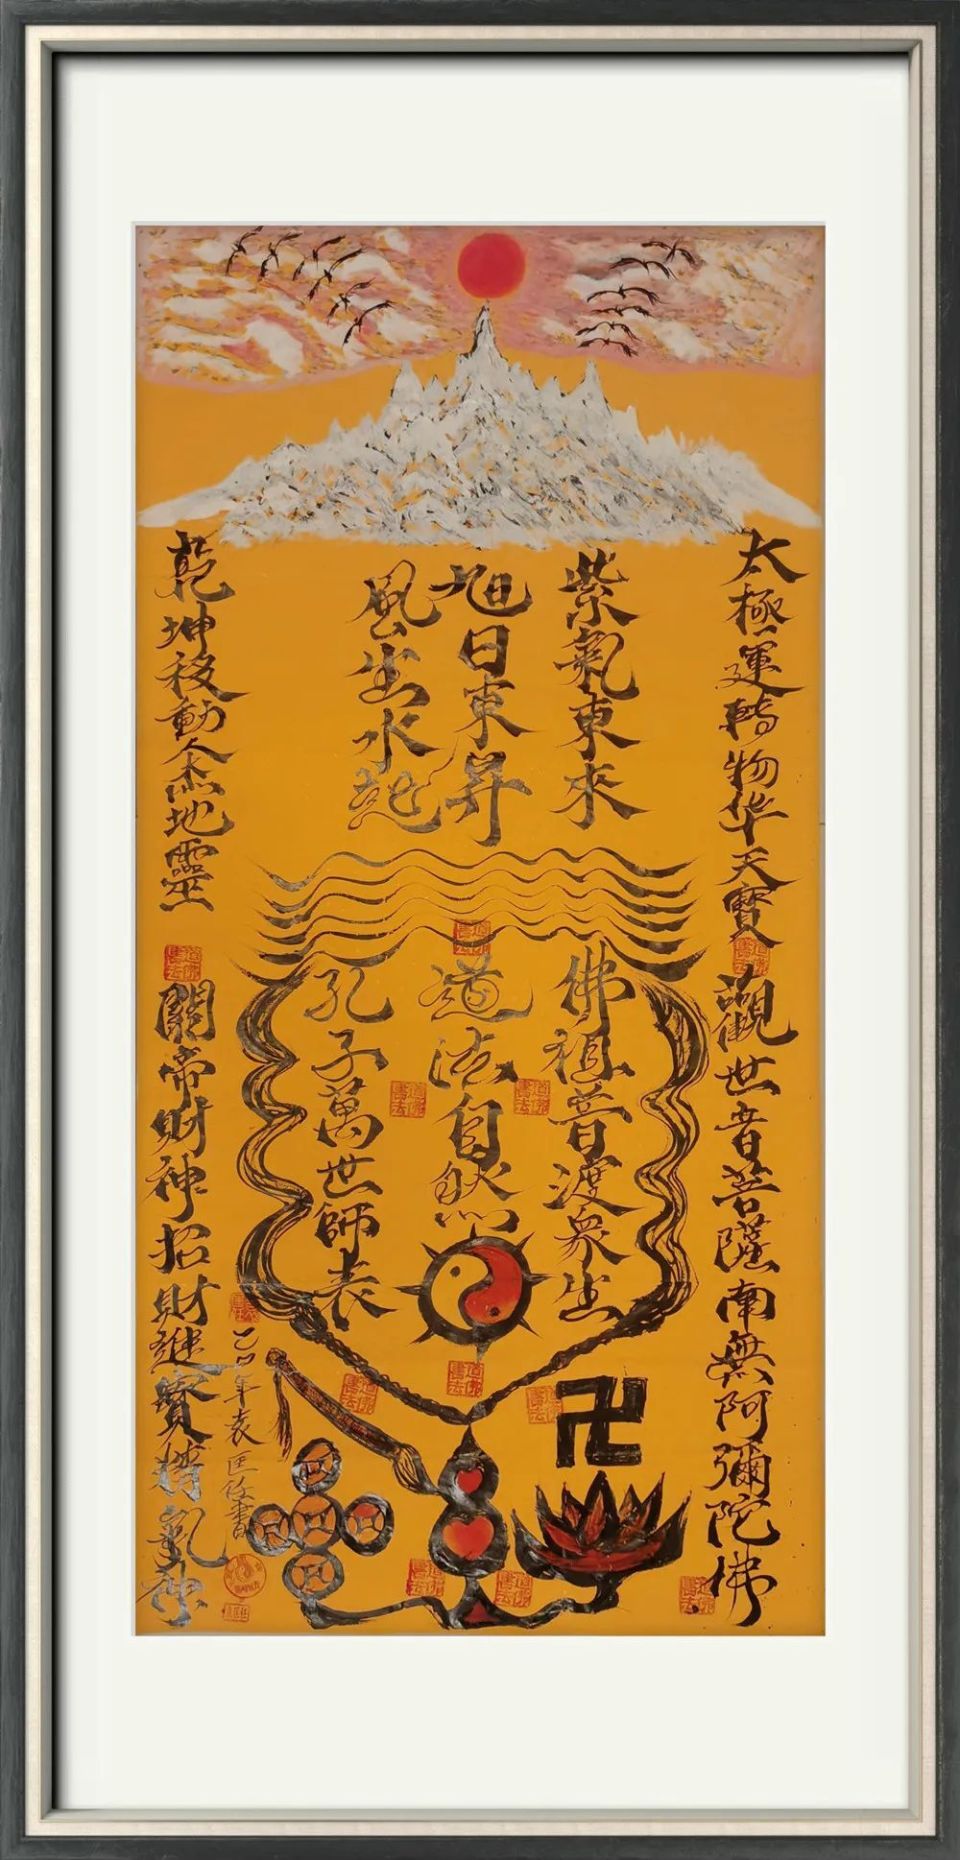 太極運轉物华天寶
觀世音菩薩南無阿彌陀佛
紫氣東來
旭日東昇
風生水起
佛祖普渡衆生
道法自然
孔子萬世師表
乾坤移動人杰地靈
關帝財神招財進寶精氣神
乙巳年袁匡俊書